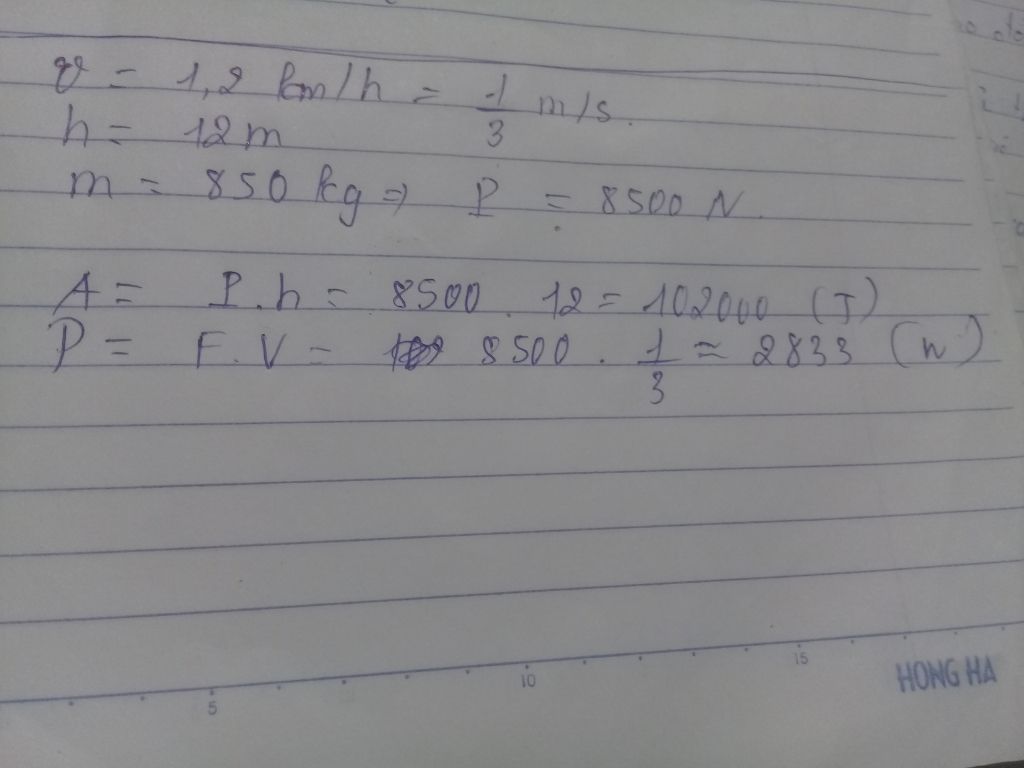 v = 1,2 km/h = 1/3 m/s.
h = 12m
m = 850 kg => P = 8500 N.
A = P.h = 8500 . 12 = 102000 (J)
P = F.V = 8500 . 1/3 ≈ 2833 (W)
5 10 15
HONG HA